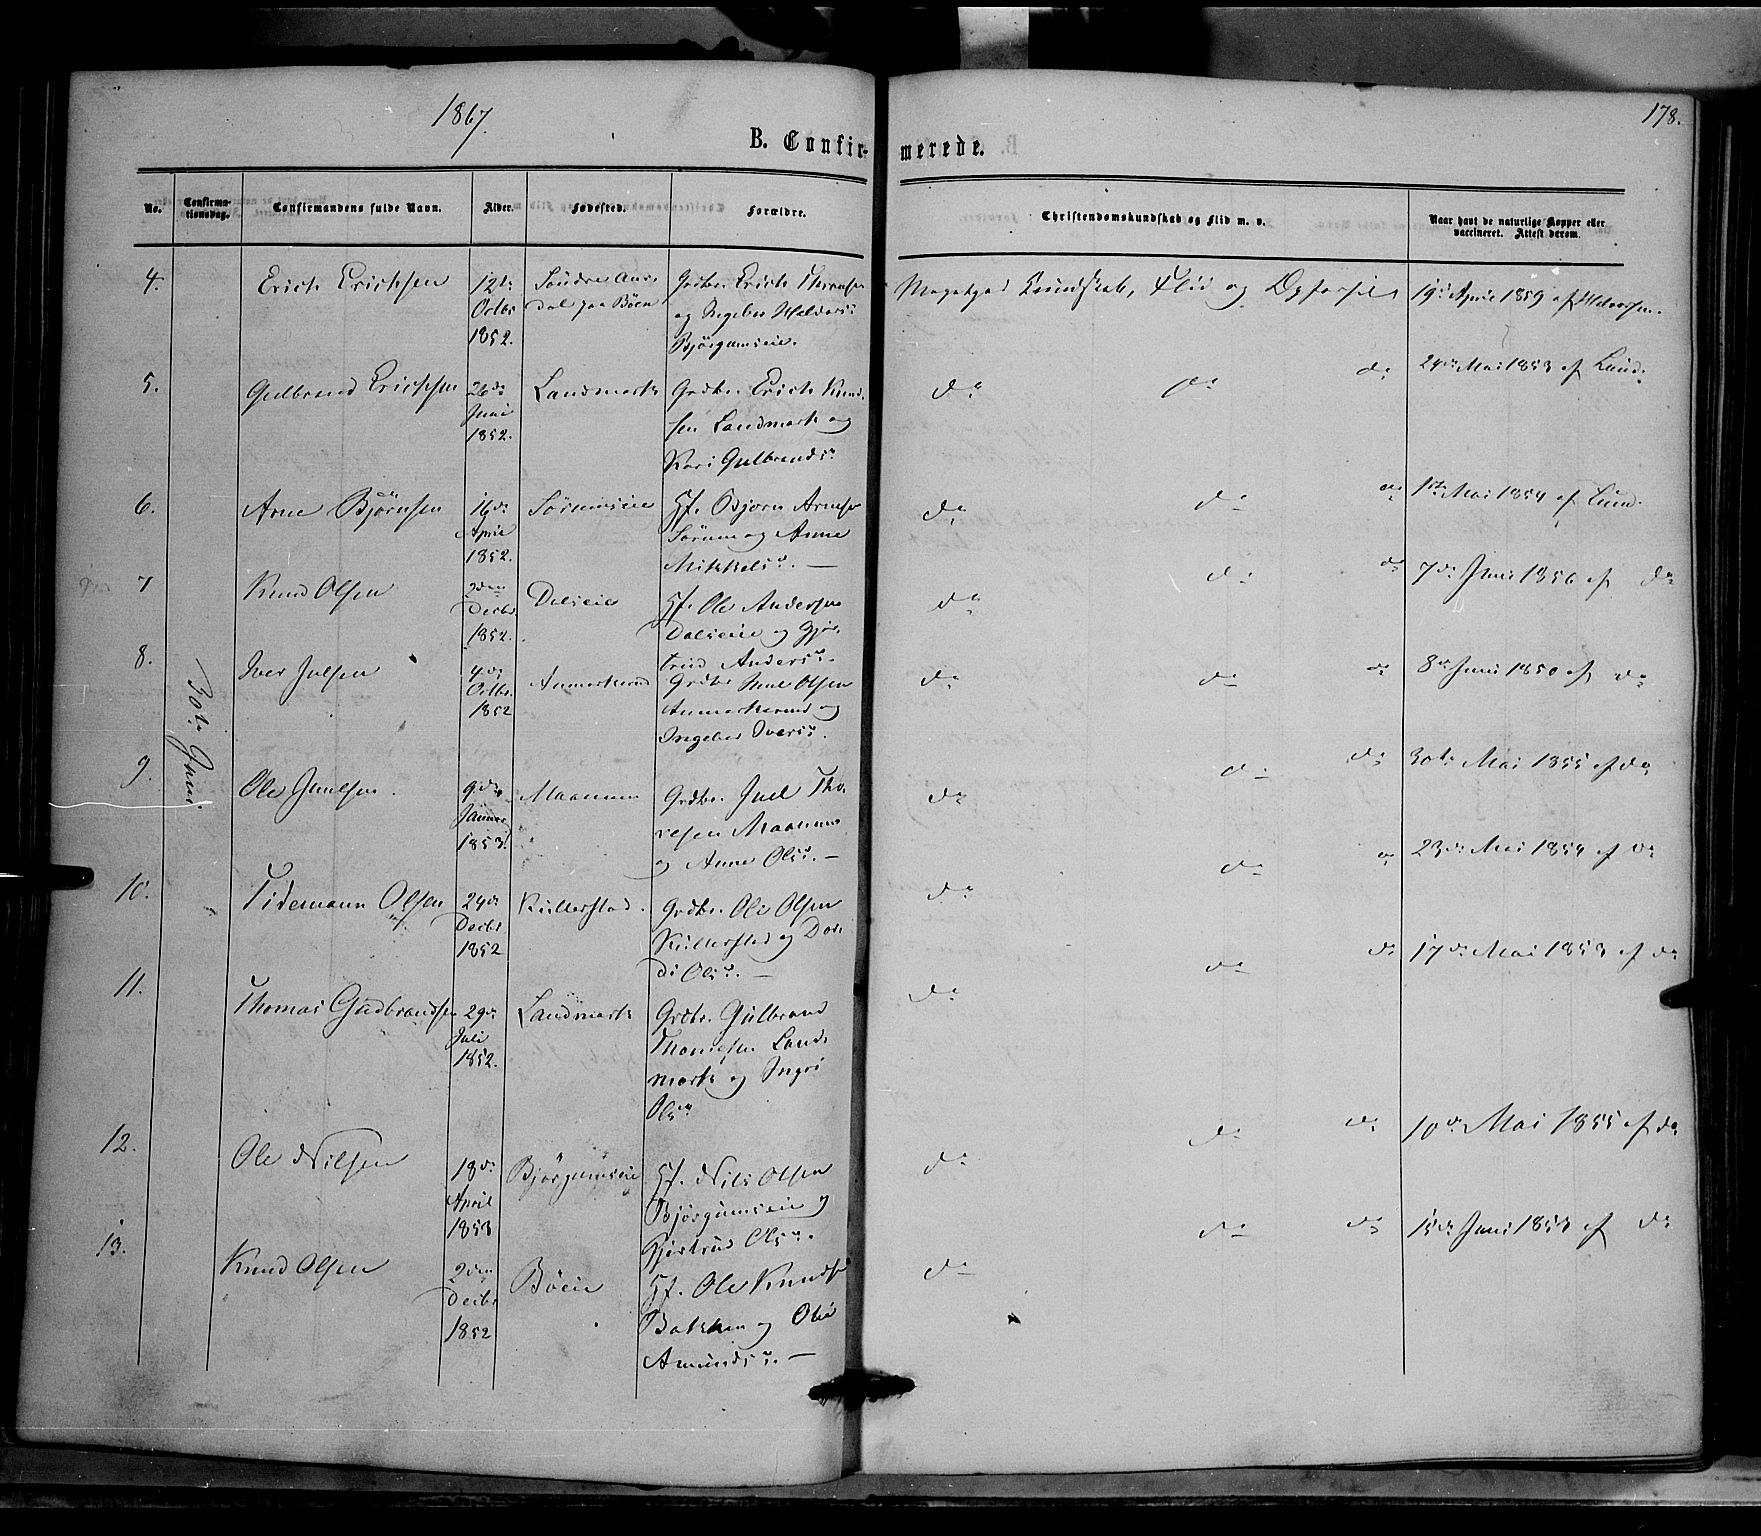 1867.
178.
B. Confir-
merede.
No.
Confirma-
tionsdag.
Confirmandens fulde Navn.
Alder.
Fødested.
Forældre.
Christendomskundskab og Flid m. v.
Naar havt de naturlige Kopper eller
vaccineret. Attest derom.
30te Juni
4.
Erich Erichsen
12te
Octbr
1852.
Søndre Aur-
dal paa Bøen
Grdbr. Erich
og Ingebor Halvors:
Bjørgumseie.
Megetgod Kundskab, Flid og Opførsel
19de April 1859 af Halvorsen.
5.
Gulbrand Erichsen
26de
Juni
1852.
Landmark
Grdbr. Erich Knud-
sen Landmark og
Kari Gulbrandsd:
do do do
24de Mai 1853 af Lund.
6.
Arne Bjørnsen
16de
April
1852.
Sørumseie
Hf. Bjørn Arnesen
Sørum og Anne
Mikkelsd. —
do do do
1ste Mai 1854 af Lund.
7
Knud Olsen
2den
Decbr
1852.
Dalseie
Hf. Ole Andersen
Dalseie og Gjer-
trud Andersd.
do do do
7de Juni 1856 af do
8.
Iver Julsen
4de
Octbr.
1852
Aunerkerud
Grdbr. Juul Olsen
Aunerkerud og
Ingebor Iversd.
do do do
8de Juni 1850 af do
9.
Ole Juulsen.
9de
Januar
1853.
Maanum
Grdbr. Juul Tho-
resen Maanum
og Anne Olsd. —
do do do
30te Mai 1855 af do
10.
Tidemann Olsen
24de
Decbr
1852
Kullerstad.
Grdbr. Ole Olsen
Kullerstad og Dor-
di Olsd. —
do do do
23de Mai 1854 af do
11.
Thomas Gudbrandsen
29de
Juli
1852.
Landmark
Grdbr. Gulbrand
Thomesen Land-
mark og Ingri
Olsd.
do do do
17de Mai 1853 af do
12.
Ole Nilsen
18de
April
1853
Bjørgumseie
Hf. Nils Olsen
Bjørgumseie og
Gjertrud Olsd.
do do do
10de Mai 1855 af do
13.
Knud Olsen
2den
Decbr
1852
Bøeie
Hf. Ole Knudsen
Bakken og Olea
Amundsd. —
do do do
15de Juni 1853 af do